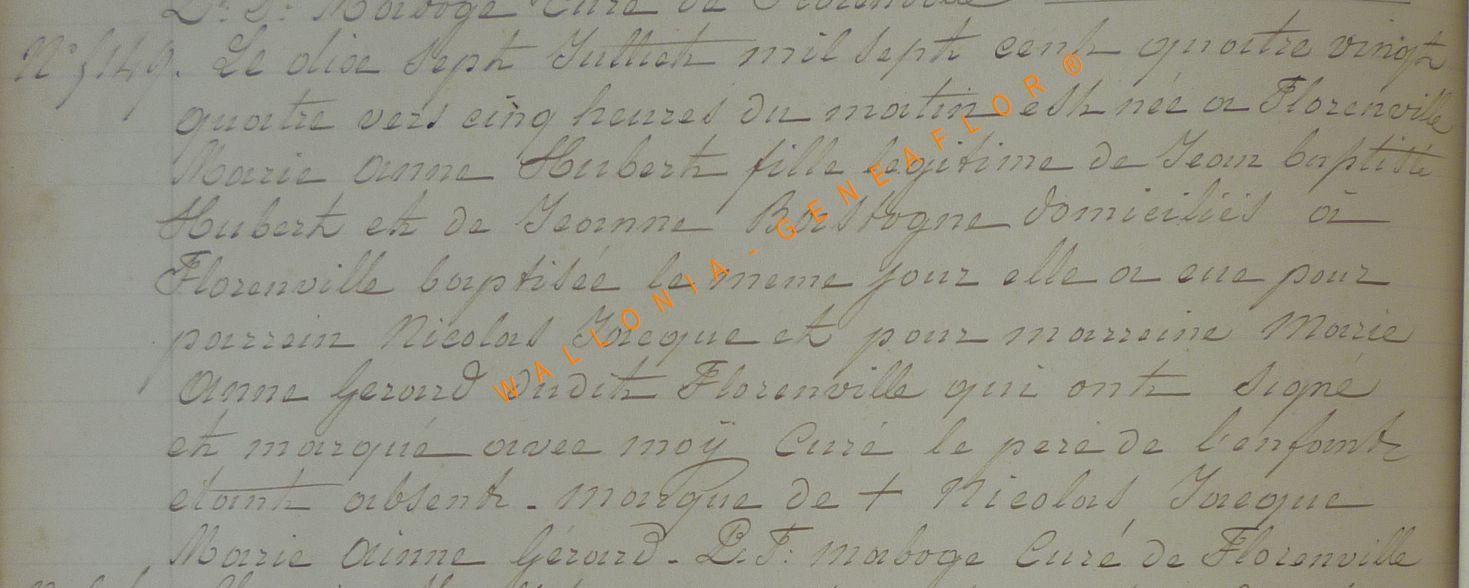 Maboge Curé de Florenville
N° 149. Le dix Sept Julliet mil sept cent quatre vingt
quatre vers cinq heures du matin est née a Florenville
Marie Anne Hubert fille legitime de Jean baptiste
Hubert et de Jeanne Bastogne domiciliés à
Florenville baptisée le meme jour elle a eue pour
parrein Nicolas Jacque et pour marreine Marie
Anne Gerard dudit Florenville qui ont signé
et marqué avec moÿ Curé le pere de l'enfant
etant absent. marque de + Nicolas Jacque
Marie Ainne Gérard. P.F: Maboge Curé de Florenville
WALLONIA - GENEAFLOR ®